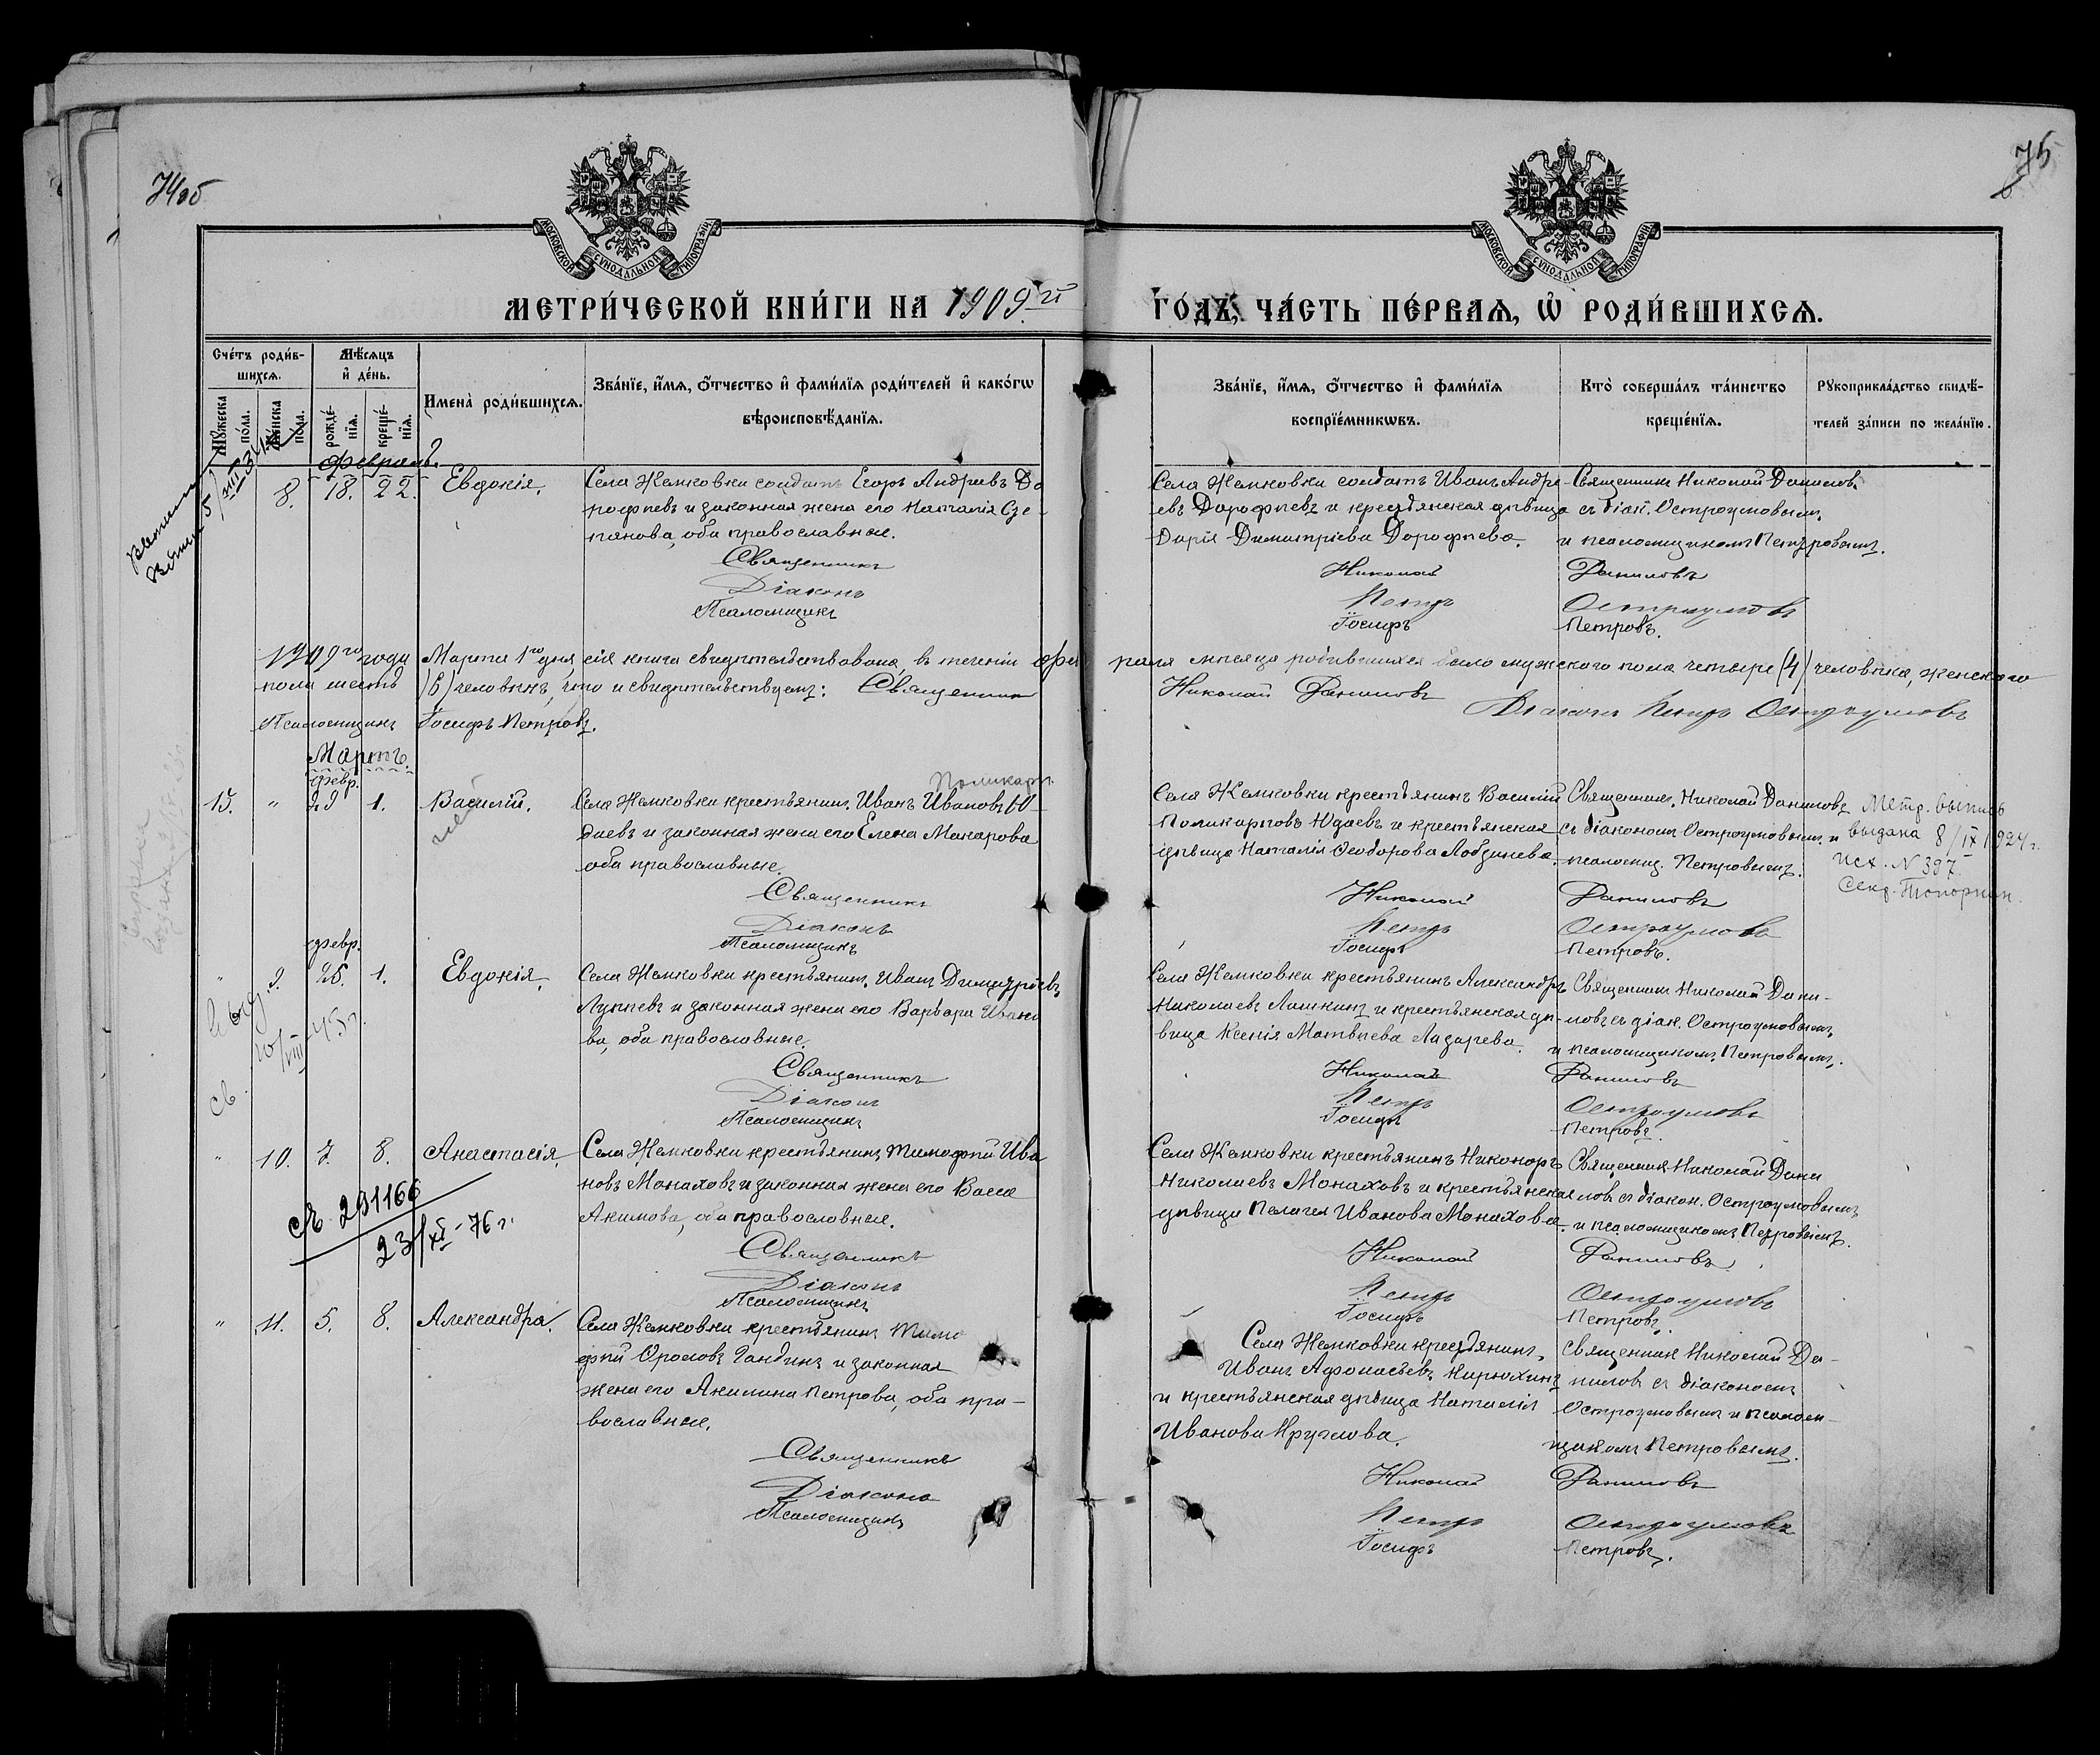 74об
75
МОСКОВСКОЙ СУНОДАЛЬНОЙ ТИПОГРАФІИ
МОСКОВСКОЙ СУНОДАЛЬНОЙ ТИПОГРАФІИ
МЕТРИ́ЧЕСКОЙ КНИ́ГИ НА 1909.й ГО́ДЪ, ЧА́СТЬ ПЕ́РВАЯ, Ѽ РОДИ́ВШИХСЯ.
Сче́тъ роди́в-
шихся.
Му́жеска по́ла.
Же́нска по́ла.
Мѣ́сяцъ
и҆ де́нь.
рожде́-
нїя.
креще́-
нїя.
Имена̀ роди́вшихся.
Зва́нїе, и҆́мя, ѻ҆́тчество и҆ фами́лїя роди́телей и҆ како́гѡ
вѣроисповѣ́данїя.
Зва́нїе, и҆́мя, ѻ҆́тчество и҆ фами́лїя
воспрїе́мникѡвъ.
Кто̀ соверша́лъ та́инство
креще́нїя.
Рꙋкоприкла́дство свидѣ́-
телей за́писи по жела́нїю.
Февраль.
8. 18. 22. Евдокія.
Села Жемковки солдатъ Егоръ Андреевъ До
рофѣевъ и законная жена его Наталія Сте
панова, оба православные.
Священникъ
Діаконъ
Псаломщикъ
Села Жемковки солдатъ Иванъ Андре-
евъ Дорофѣевъ и крестьянская дѣвица
Дарія Димитріева Дорофѣева.
Николай
Петръ
Іосифъ
Священникъ Николай Даниловъ
съ діак. Остроумовымъ
и псаломщикомъ Петровымъ.
Даниловъ
Остроумовъ
Петровъ.
1909го года Марта 1го дня сія книга свидѣтельствована, въ теченіи фев раля мѣсяца родившихся было мужского пола четыре (4) человѣка, женского
пола шесть (6) человѣкъ, что и свидѣтельствуемъ: Священникъ Николай Даниловъ
Діаконъ Петръ Остроумовъ
Псаломщикъ Іосифъ Петровъ.
Мартъ.
февр.
15. " 29 1. Василій.
Поликарп.
Села Жемковки крестьянинъ Иванъ Ивановъ Ю-
даевъ и законная жена его Елена Макарова
оба православные.
Священникъ
Діаконъ
Псаломщикъ
Села Жемковки крестьянинъ Василій
Поликарповъ Юдаевъ и крестьянская
дѣвица Наталія Ѳеодорова Лобзинева.
Николай
Петръ
Іосифъ
Священникъ Николай Даниловъ
съ діакономъ Остроумовымъ и
псаломщ. Петровымъ.
Даниловъ
Остроумовъ
Петровъ.
Метр. выпись
выдана 8/IX 1924 г.
исх. N 397.
февр.
" 9. 26. 1. Евдокія.
Села Жемковки крестьянинъ Иванъ Димитріевъ
Лупѣевъ и законная жена его Варвара Ивано
ва, оба православные.
Священникъ
Діаконъ
Псаломщикъ
Села Жемковки крестьянинъ Александръ
Николаевъ Лашкинъ и крестьянская дѣ-
вица Ксенія Матвѣева Лазарева.
Николай
Петръ
Іосифъ
Священникъ Николай Дани-
ловъ съ діак. Остроумовымъ
и псаломщикомъ Петровымъ.
Даниловъ
Остроумовъ
Петровъ.
" 10. 7. 8. Анастасія.
Села Жемковки крестьянинъ Тимофей Ива
новъ Монаховъ и законная жена его Васса
Акимова, оба православные.
Священникъ
Діаконъ
Псаломщикъ
Села Жемковки крестьянинъ Никоноръ
Николаевъ Монаховъ и крестьянская
дѣвица Пелагея Иванова Монахова.
Николай
Петръ
Іосифъ
Священникъ Николай Дани
ловъ съ діакон. Остроумовымъ
и псаломщикомъ Петровымъ.
Даниловъ
Остроумовъ
Петровъ.
291166
23/XI-76 г.
" 11. 5. 8. Александра.
Села Жемковки крестьянинъ Тимо
фей Фроловъ Гандинъ и законная
жена его Акилина Петрова, оба пра-
вославные.
Священникъ
Діаконъ
Псаломщикъ
Села Жемковки крестьянинъ
Иванъ Афонасьевъ Кирюхинъ
и крестьянская дѣвица Наталія
Иванова Круглова.
Николай
Петръ
Іосифъ
Священникъ Николай Да-
ниловъ съ діакономъ
Остроумовымъ и псалом-
щикомъ Петровымъ.
Даниловъ
Остроумовъ
Петровъ.